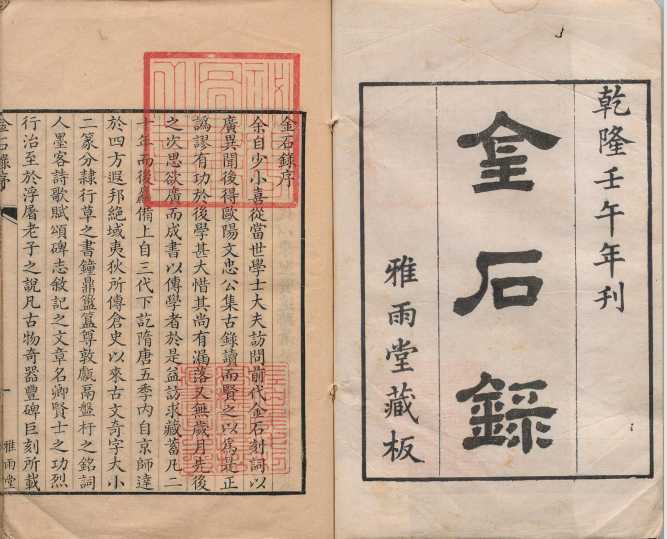 乾隆壬午年刊
金石錄
雅雨堂藏板
金石錄序
余自少小喜從當世學士大夫訪問前代金石刻詞以
廣異聞後得歐陽文忠公集古錄讀而賢之以為是正
譌謬有功於後學甚大惜其尚有漏落又無歲月先後
之次思欲廣而成書以傳學者於是益訪求藏蓄凡二
十年而後麤備上自三代下訖隋唐五季內自京師達
於四方遐邦絕域夷狄所傳倉史以來古文奇字大小
二篆分隸行草之書鐘鼎簠簋尊敦甗鬲盤杅之銘詞
人墨客詩歌賦頌碑志敘記之文章名卿賢士之功烈
行治至於浮屠老子之說凡古物奇器豐碑巨刻所載
金石錄序
一
雅雨堂